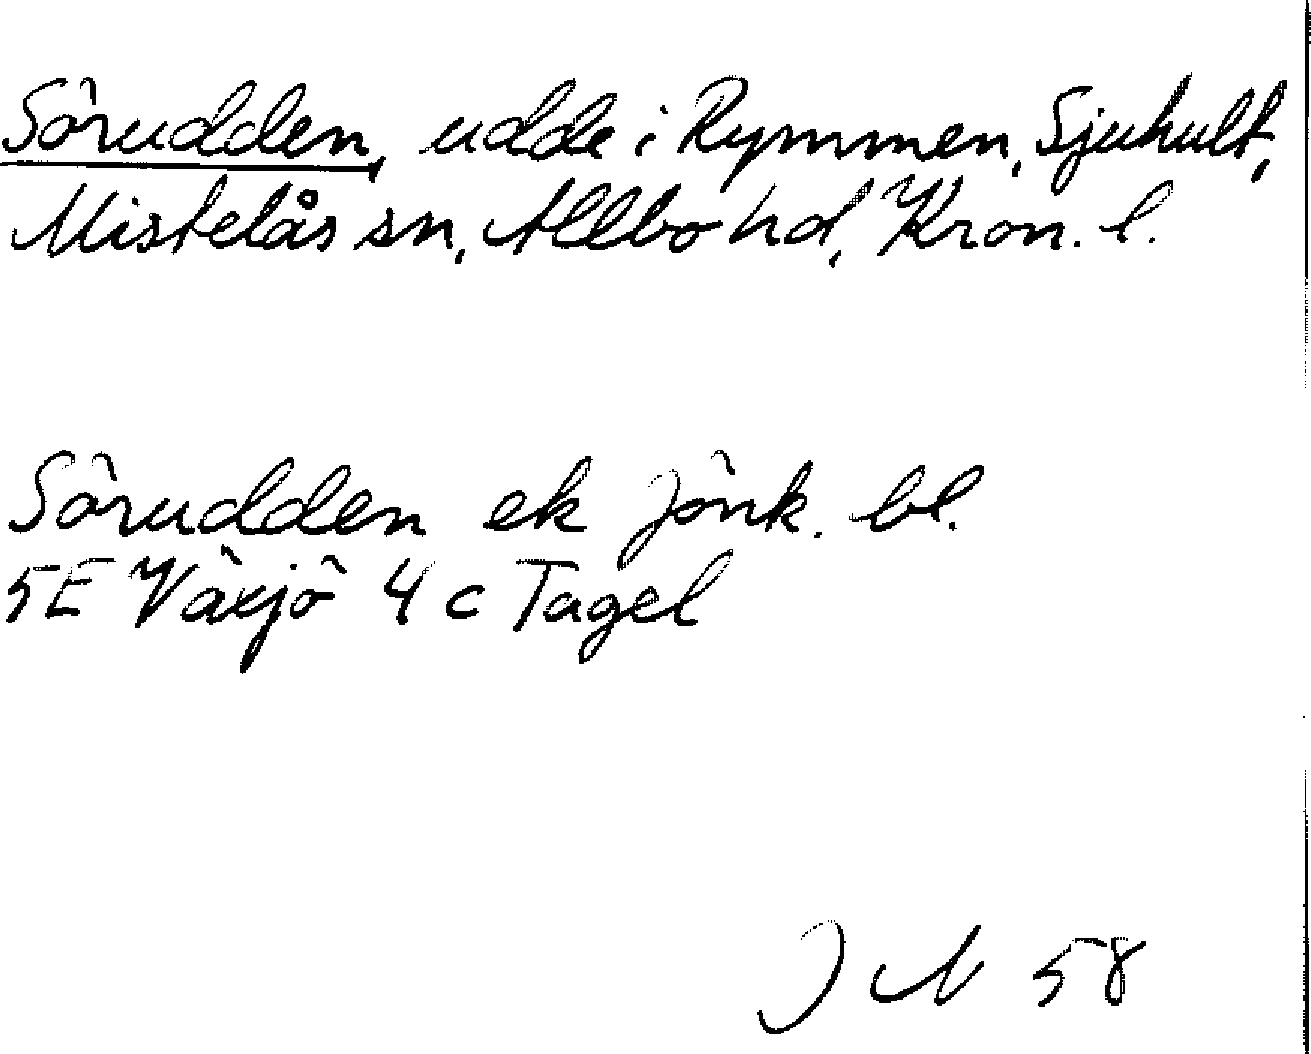 Sörudden, udde i Rymmen, Sjuhult,
Mistelås sn, Allbo hd, Kron. l.
Sörudden ek jönk. bl.
5E Växjö 4 c Tagel
J N 58